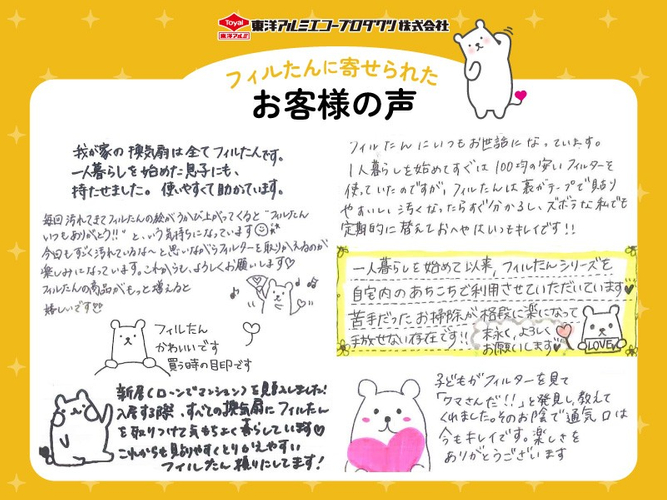 Toyal
東洋アルミ
東洋アルミエコープロダクツ株式会社
フィルたんに寄せられた
お客様の声
我が家の換気扇は全てフィルたんです。
一人暮らしを始めた息子にも、
持たせました。使いやすくて助かています。
毎回汚れてきてフィルたんの絵がうかび上がってくると"フィルたん
いつもありがとう!!"という気持ちになっています
今回もすごく汚れているな〜と思いながらフィルターを取りかえるのが
楽しみになっています。これからも、よろしくお願いします♡
フィルたんの商品がもっと増えると
嬉しいです
フィルたん
かわいいです
買う時の目印です
新居(ローンでマンション)を購入しました!
入居する際、すべての換気扇にフィルたん
を取りつけて気もちよく暮らしています
これからも貼りやすくとりかえやすい
フィルたん頼りにしてます!
フィルたんにいつもお世話になっています。
1人暮らしを始めてすぐは100均の安いフィルターを
使っていたのですが、フィルたんは裏がテープで貼り
やすいし汚くなったらすぐ分かるし、ズボラな私でも
定期的に替えておへやはいつもキレイです!!
一人暮らしを始めて以来,フィルたんシリーズを
自宅内のあちこちで利用させていただいています♥
苦手だったお掃除が格段に楽になって
手放せない存在です!!
末永く、よろしく
お願いします♥
LOVE
子どもがフィルターを見て
「クマさんだ!!」と発見し、教えて
くれました。そのお陰で通気口は
今もキレイです。楽しさを
ありがとうございます